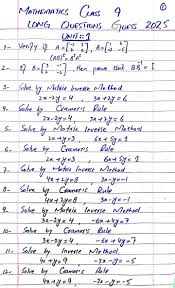 Mathematics Class 9 ①
Long Questions Guess 2025
Unit: 1
1- Verify if A = , B =
(AB)ᵗ = BᵗAᵗ
2- if B = , then prove that BB⁻¹ = I
3- Solve by Matrix Inverse Method
2x-2y=4, 3x+2y=6
4. Solve by Cramer's Rule
2x-2y=4, 3x+2y=6
5- Solve by Matrix Inverse Method
2x+y=3, 6x+5y=1
6- Solve by Cramer's Rule
2x+y=3, 6x+5y=1
7- Solve by Matrix Inverse Method
4x+2y=8, 3x-y=-1
8- Solve by Cramer's Rule
4x+2y=8, 3x-y=-1
9- Solve by Matrix Inverse Method
3x-2y=4, -6x+4y=7
10- Solve by Cramer's Rule
3x-2y=4, -6x+4y=7
11- Solve by Inverse Method
4x+y=9, -3x-y=-5
12- Solve by Cramer's Rule
4x+y=9, -3x-y=-5